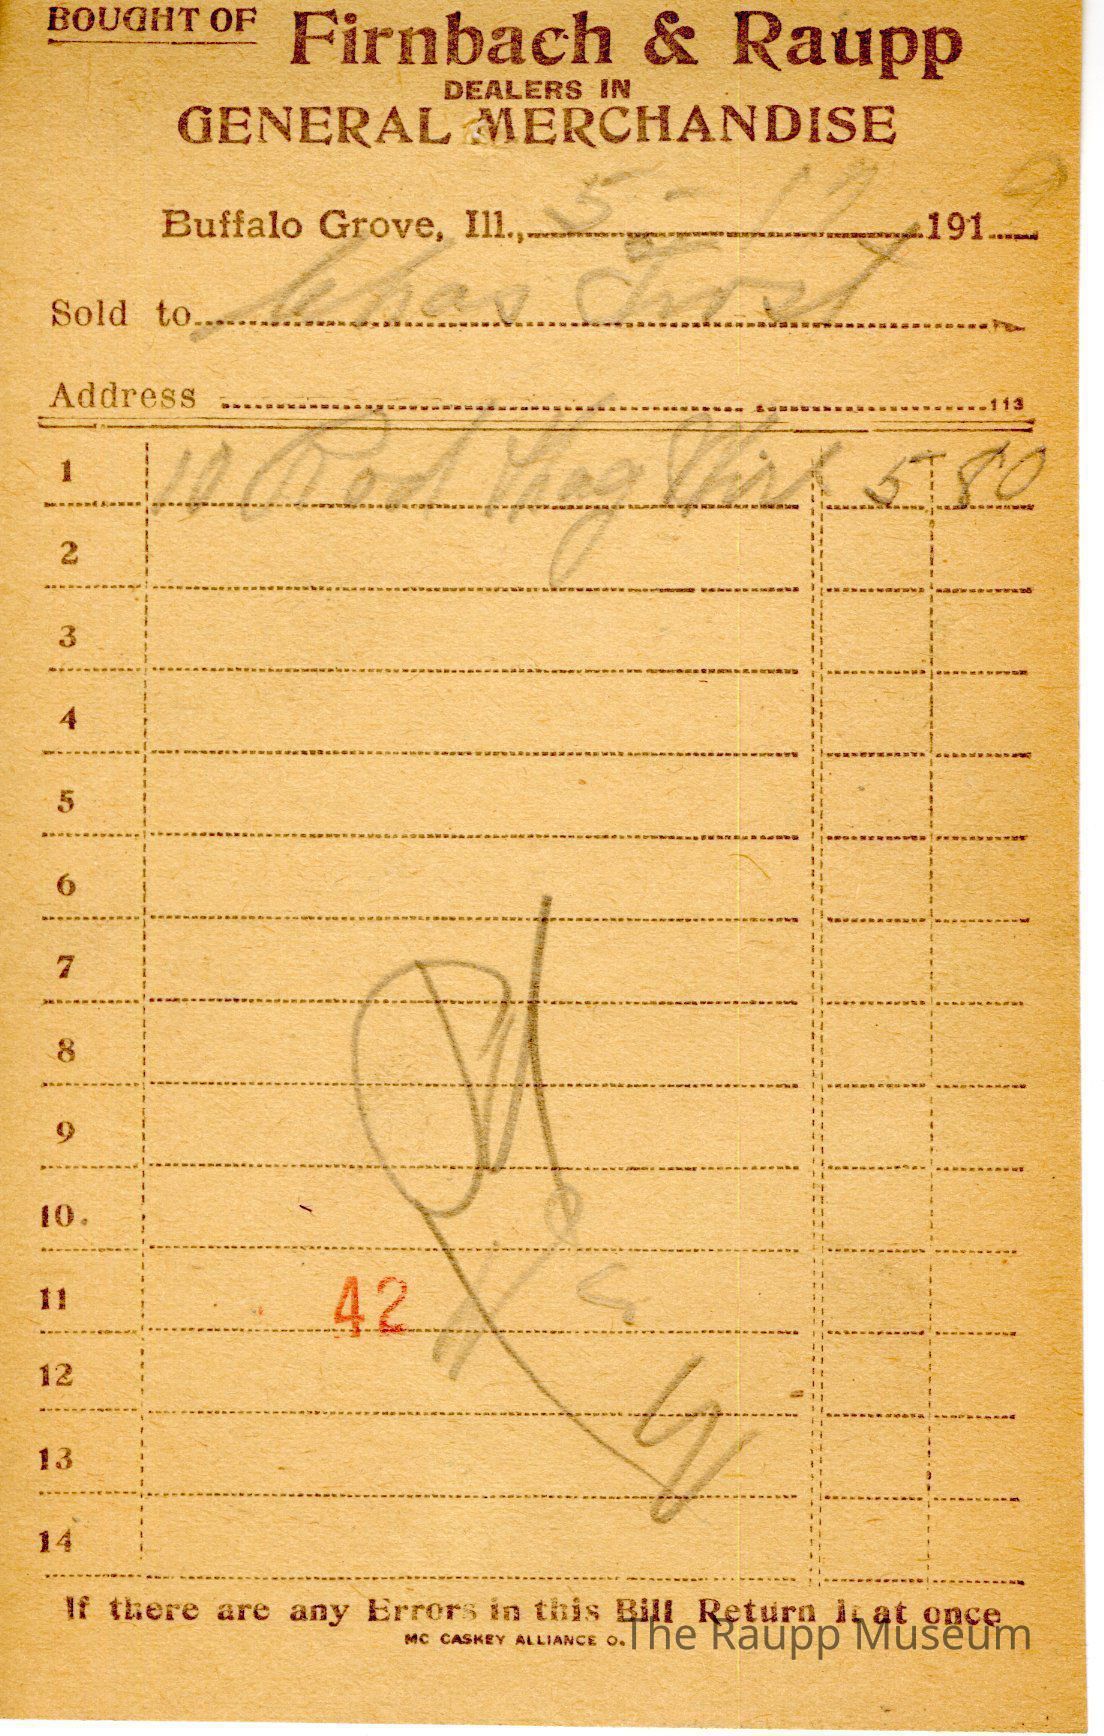 BOUGHT OF Firnbach & Raupp
DEALERS IN
GENERAL MERCHANDISE
Buffalo Grove, Ill., 5-19 1919
Sold to Chas Trost
Address 113
1 10 Rod Hog Wire 5 80
2
3
4
5
6
7
8
9
10.
11 42
12
13
14
If there are any Errors in this Bill Return It at once
MC CASKEY ALLIANCE O.
The Raupp Museum